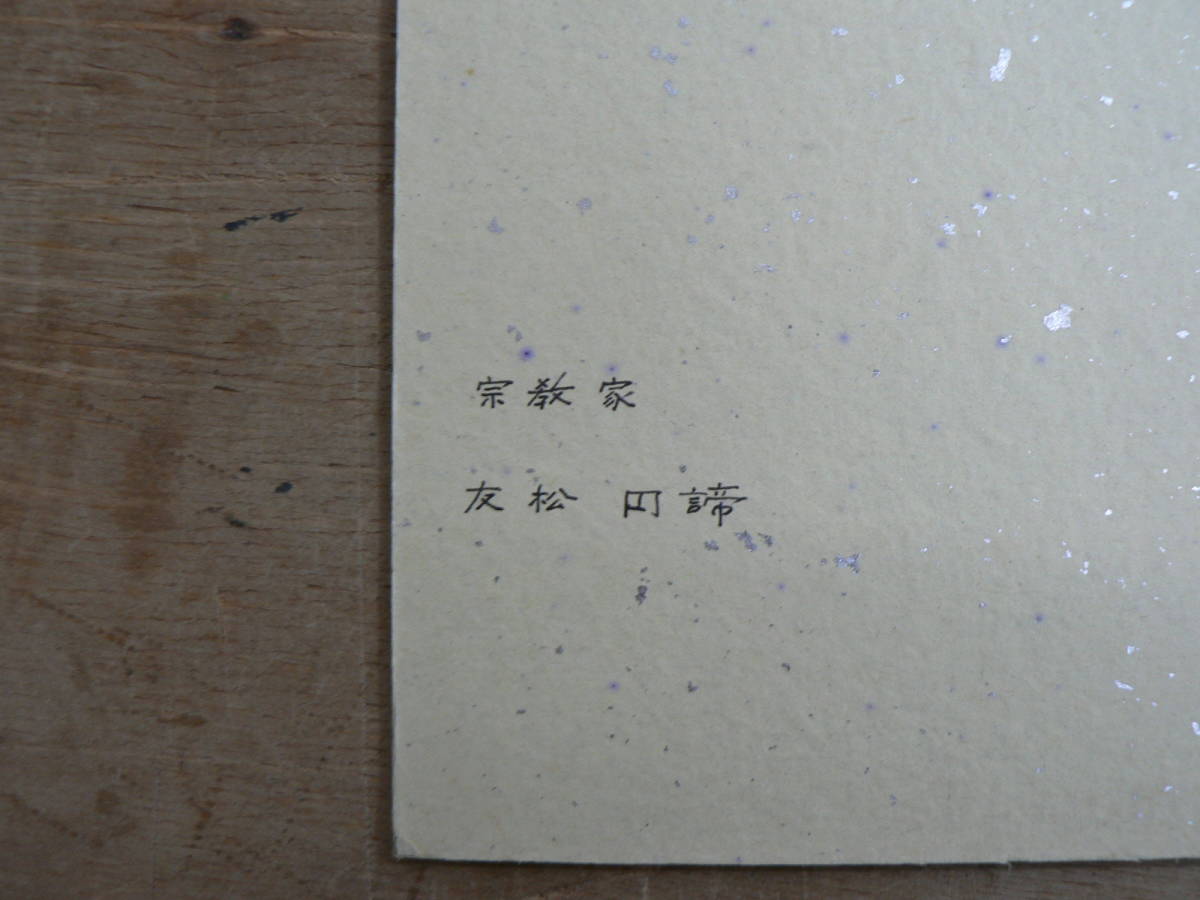 宗教家
友松 円諦